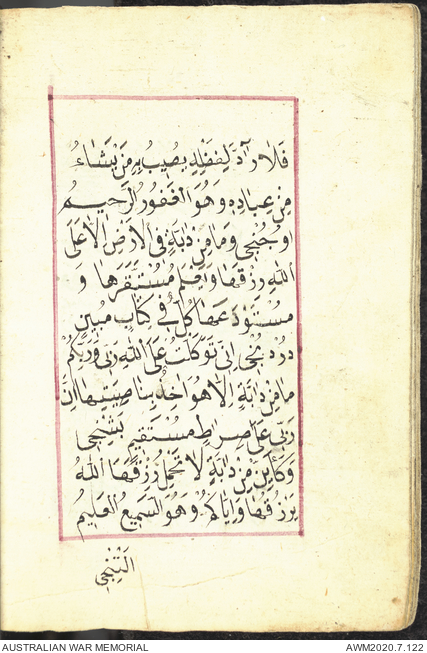 فَلَا رَآدَّ لِفَضْلِهِ يُصِيبُ بِهِ مَنْ يَشَاءُ
مِنْ عِبَادِهِ وَهُوَ الْغَفُورُ الرَّحِيمُ
اوجنجى وَمَا مِنْ دَابَّةٍ فِى الْاَرْضِ اِلَّا عَلَى
اللهِ رِزْقُهَا وَيَعْلَمُ مُسْتَقَرَّهَا وَ
مُسْتَوْدَعَهَا كُلٌّ فِى كِتَابٍ مُبِينٍ
دردنجى اِنِّى تَوَكَّلْتُ عَلَى اللهِ رَبِّى وَرَبِّكُمْ
مَا مِنْ دَابَّةٍ اِلَّا هُوَ اخِذٌ بِنَاصِيَتِهَا اِنَّ
رَبِّى عَلَى صِرَاطٍ مُسْتَقِيمٍ بشنجى
وَكَأَيِّنْ مِنْ دَابَّةٍ لَا تَحْمِلُ رِزْقَهَا اللهُ
يَرْزُقُهَا وَاِيَّاكُمْ وَهُوَ السَّمِيعُ الْعَلِيمُ
التنجى
AUSTRALIAN WAR MEMORIAL
AWM2020.7.122